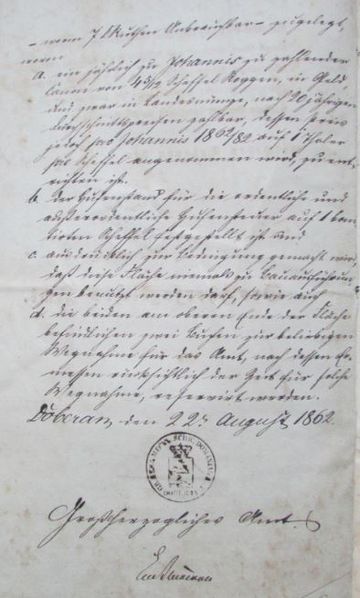 — wenn 7 □Ruthen Unbrauchbar — zugelegt,
wenn
a. ein jährlich zu Johannis zu zahlender
Canon von Scheffel Roggen, in Geld,
und zwar in Landesmünze, nach 20jährigen
Durchschnittspreisen zahlbar, dessen Preis
jedoch pro Johannis 1862/82 auf 1 Thaler
pro Scheffel angenommen wird, zu ent-
richten ist.
b. der Hufenstand für die ordentliche und
außerordentliche Hufensteuer auf 1 boni-
tirten Scheffel festgestellt ist und
c. ausdrücklich zur Bedingung gemacht wird,
daß diese Fläche niemals zu Bauausführun-
gen benutzt werden darf, sowie auch
d. die beiden am oberen Ende der Fläche
befindlichen zwei Buchen zur beliebigen
Wegnahme für das Amt, nach dessen Er-
messen rücksichtlich der Zeit für solche
Wegnahme, reservirt werden.
Doberan, den 22n August 1862.
Großherzogliches Amt.